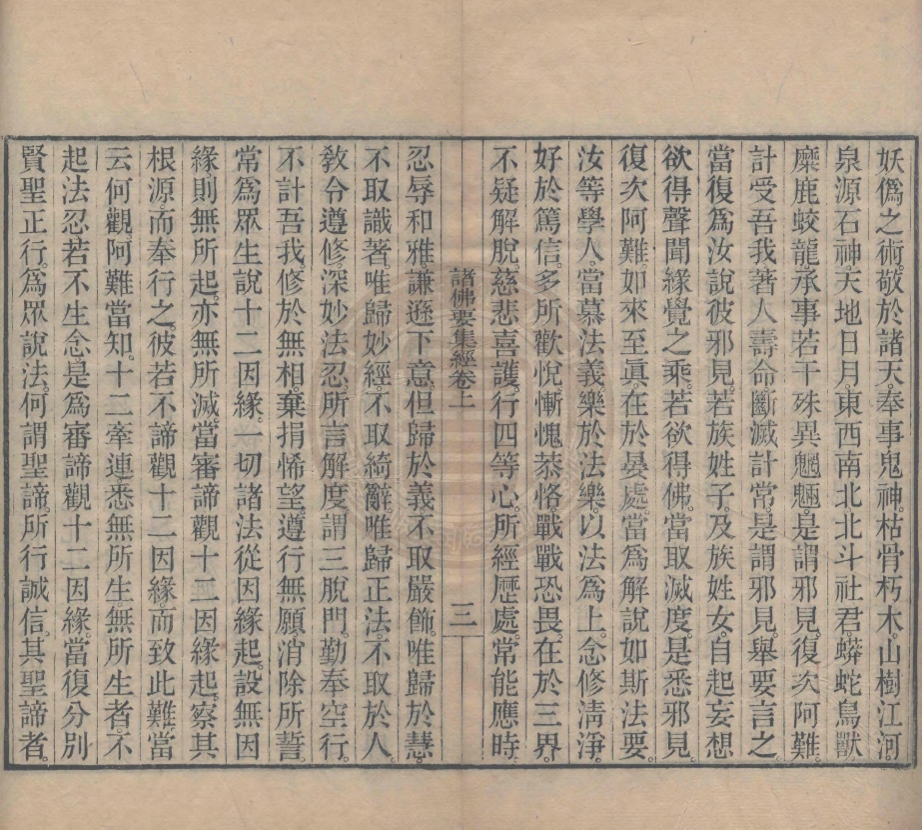 妖僞之術。敬於諸天。奉事鬼神。枯骨朽木。山樹江河。
泉源石神。天地日月。東西南北。北斗社君。蟒蛇鳥獸
麋鹿蛟龍。承事若干殊異魍魎。是謂邪見。復次阿難。
計受吾我著人壽命。斷滅計常。是謂邪見。舉要言之
當復爲汝說彼邪見。若族姓子。及族姓女。自起妄想
欲得聲聞緣覺之乘。若欲得佛。當取滅度。是悉邪見。
復次阿難。如來至眞。在於晏處。當爲解說如斯法要。
汝等學人。當慕法義。樂於法樂。以法爲上。念修淸淨。
好於篤信。多所歡悅。慚愧恭恪。戰戰恐畏。在於三界。
不疑解脫。慈悲喜護。行四等心。所經歷處。常能應時
諸佛要集經卷上 三
忍辱和雅。謙遜下意。但歸於義。不取嚴飾。唯歸於慧。
不取識著。唯歸妙經。不取綺辭。唯歸正法。不取於人。
敎令遵修深妙法忍。所言解度。謂三脫門。勤奉空行。
不計吾我。修於無相。棄捐悕望。遵行無願。消除所誓
常爲眾生說十二因緣。一切諸法從因緣起。設無因
緣則無所起。亦無所滅。當審諦觀十二因緣起。察其
根源。而奉行之。彼若不諦觀十二因緣。而致此難。當
云何觀。阿難當知。十二牽連悉無所生。無所生者。不
起法忍。若不生念。是爲審諦觀十二因緣。當復分別
賢聖正行。爲眾說法。何謂聖諦。所行誠信。其聖諦者。